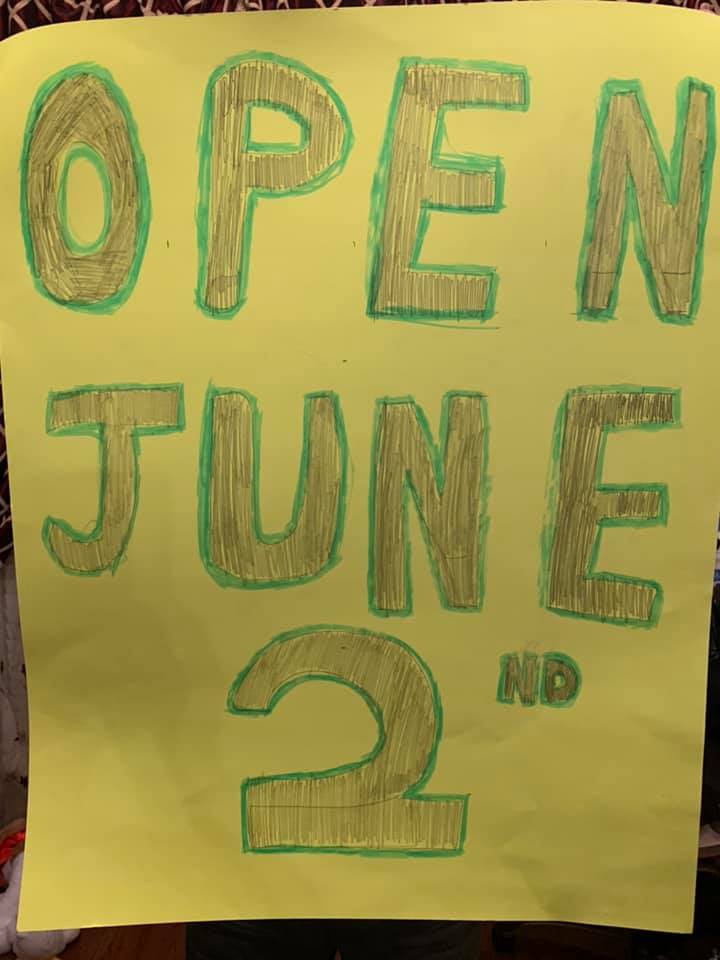 OPEN
JUNE
2ND